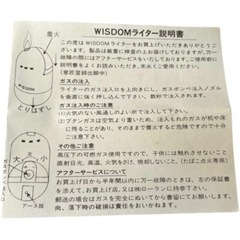 WISDOMライター説明書
着火
WISDOM
とりはずし
大 小
アース線
この度は WISDOMライターをお買上げいただきありがとう
ございます。製品は厳重に検査の上お届けしておりますが、万一
故障の場合にはアフターサービスをいたしております。ご使用前に
説明書をごらんの上ご使用下さいますようお願い致します。
(意匠登録出願中)
ガスの注入
ライターのガス注入口を上向きにし、ガスボンベ注入ノズル
を垂直に強く押し当て注入して下さい。
ガス注入時のご注意
(1)火気のない風通しのよい所で注入して下さい。
(2)ブタンガスは空気より重いため、注入の際もれたガスが机や床
の面に残ることがあり、そのままで着火すると危険ですので十分
ご注意下さい。
その他ご注意
高圧下の可燃ガス使用ですので、子供には触れさせないこと
直射日光、高温、火気をさけ、焼却しないこと。(たばこ点火専用)
アフターサービスについて
お買上げ日から半年間以内に万一故障のときは、左の保証書
を添えて、お買上げ店、又は㈱ローランに持参下さい。
郵送の場合はガスを完全にぬいてから書留にてお届け下さい。
尚、落下時の破損は責任をおいかねます。